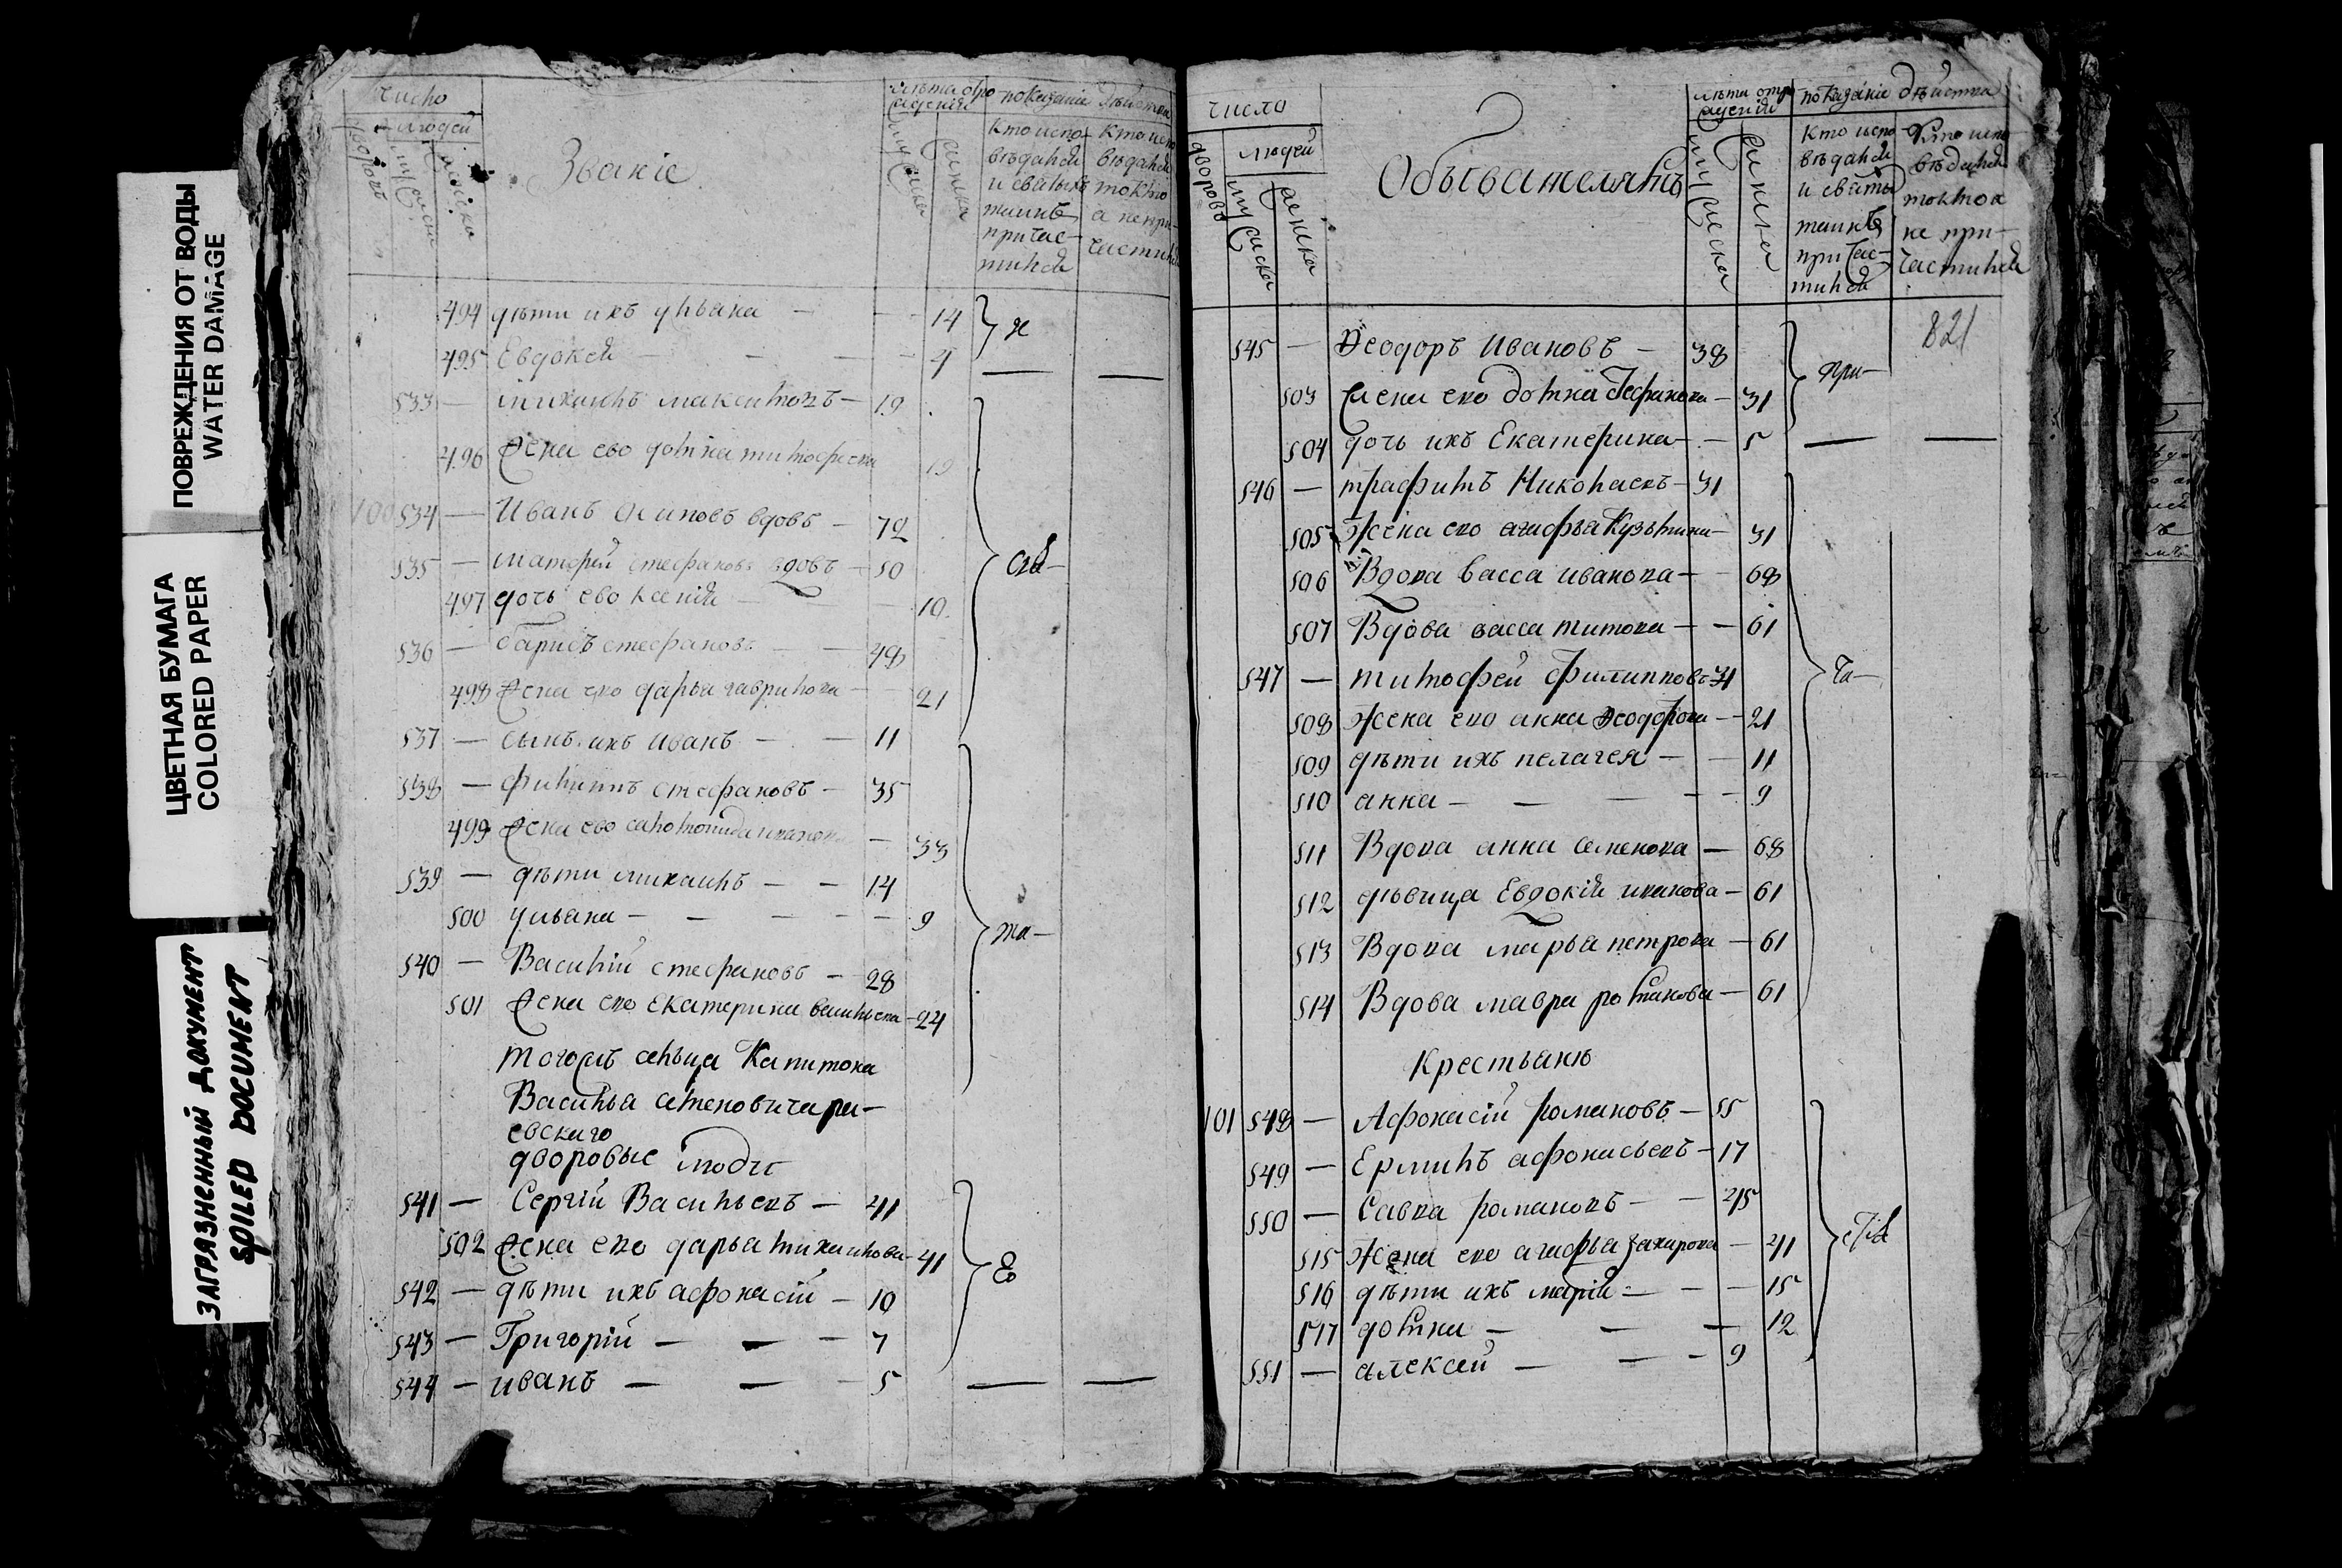 ПОВРЕЖДЕНИЯ ОТ ВОДЫ
WATER DAMAGE
ЦВЕТНАЯ БУМАГА
COLORED PAPER
ЗАГРЯЗНЕННЫЙ ДОКУМЕНТ
SPILED DOCUMENT
число
людей
Званіе
показаніе
494 дѣти ихъ ульяна — 14
495 Евдокея — 4
533 — михаилъ максимовъ — 19
496 жена ево домна тимофеева 19
100 534 — Иванъ осиповъ вдовъ — 72
535 — матфей стефановъ вдовъ — 50
497 дочь ево ксенія — 10
536 — барисъ стефановъ — 48
498 жена ево дарья гаврилова — 21
537 — сынъ ихъ иванъ — 11
538 — филиппъ стефановъ — 35
499 жена ево — 33
539 — дѣти михаилъ — 14
500 ульяна — 9
540 — Василій стефановъ — 28
501 жена ево екатерина васильева — 24
тогожъ сельца Капитона
Василья семеновича
евскаго
дворовые люди
541 — Сергій Васильевъ — 41
502 жена ево дарья михаилова — 41
542 — дѣти ихъ афонасій — 10
543 — Григорій — 7
544 — иванъ — 5
число
дворовъ
людей
мужеска
женска
Обывателямъ
показаніе дѣйства
кто испо-
вѣдался
и святы
таинъ
причас-
тился
Кто испо
вѣдался
токмо а
не при-
частился
821
545 — Ѳеодоръ Ивановъ — 38
503 жена ево домна Стефанова — 31
при—
504 дочь ихъ Екатерина — 5
546 — трафимъ Николаевъ — 31
505 Жена ево агафья Кузьмина — 31
506 Вдова васса иванова — 68
507 Вдова васса титова — 61
547 — тимофей филипповъ — 31
ча—
508 жена ево анна ѳеодорова — 21
509 дѣти ихъ пелагея — 11
510 анна — 9
511 Вдова анна семенова — 68
512 дѣвица Евдокія иванова — 61
513 Вдова марья петрова — 61
514 Вдова мавра романова — 61
Крестьяне
101 548 — Афонасій романовъ — 55
549 — Ермилъ афонасьевъ — 17
550 — Савва романовъ — 45
515 жена ево агафья захарова — 41
516 дѣти ихъ марія — 15
517 домна — 12
551 — алексей — 9